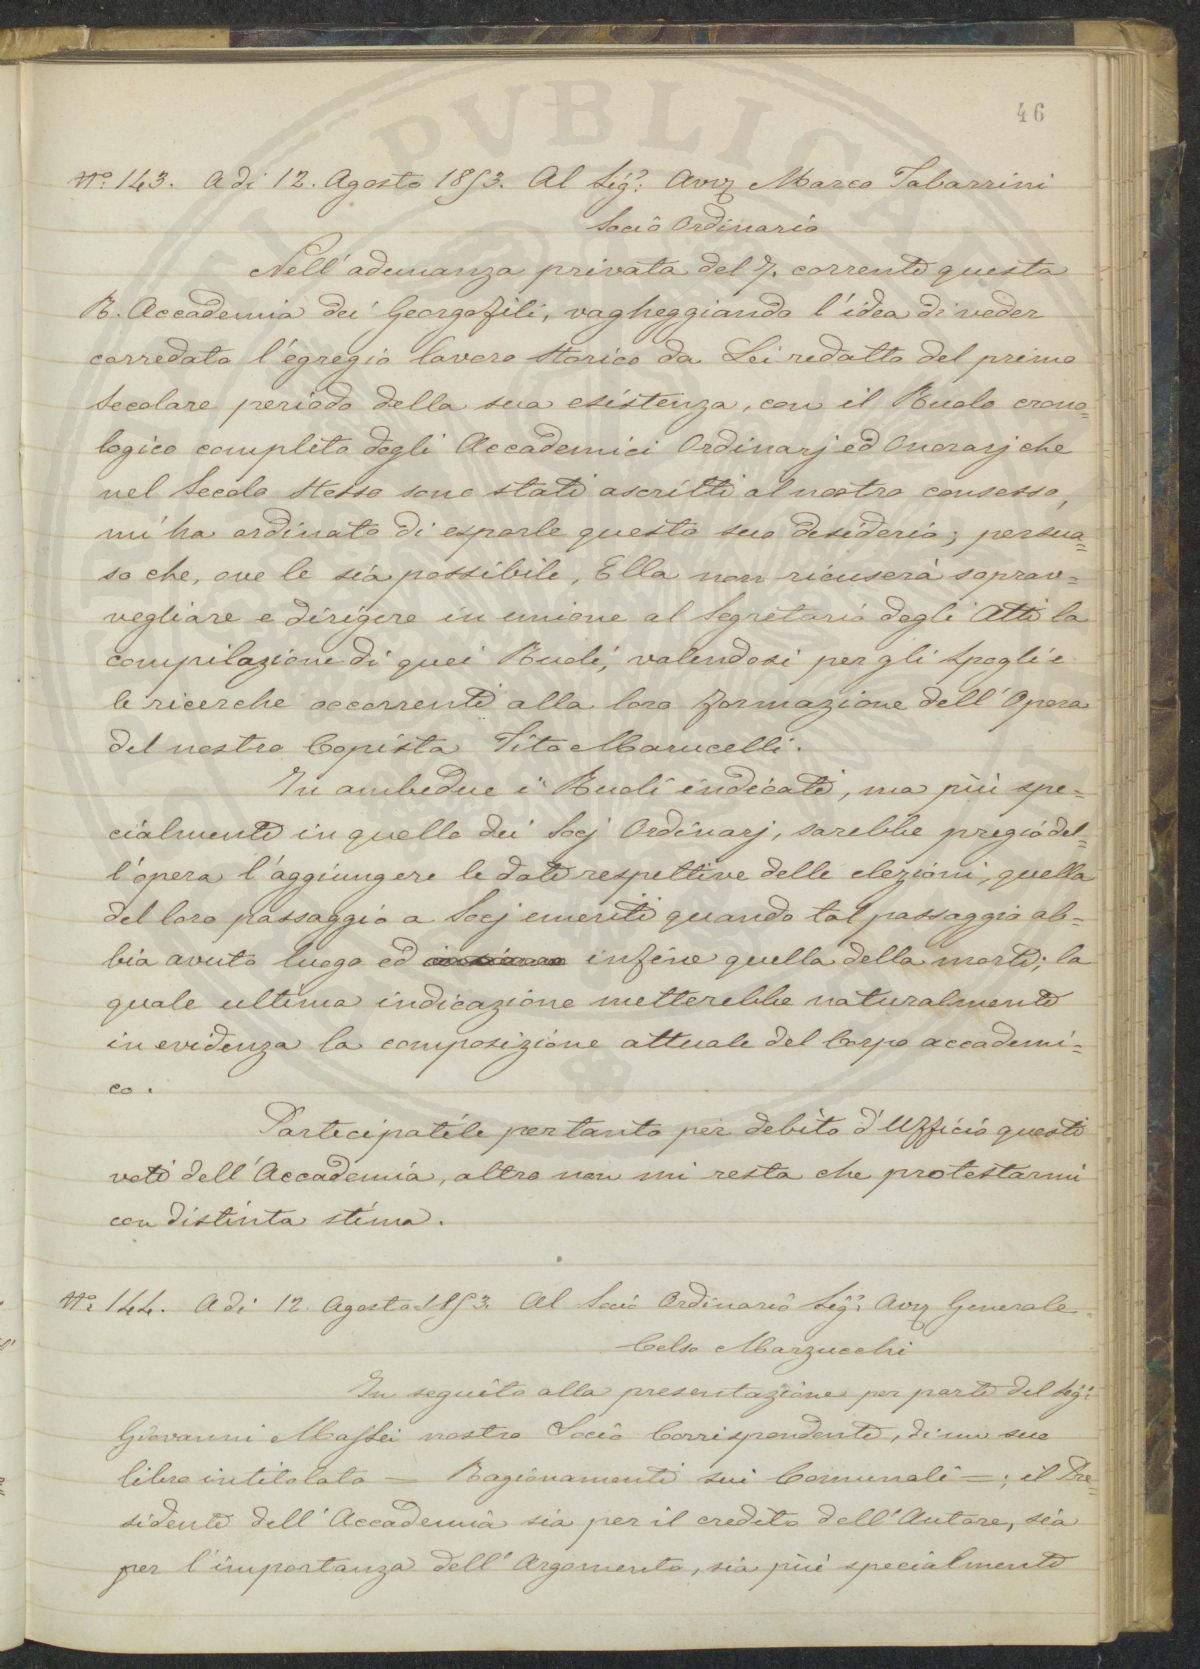 46
N.º 143. A di 12. Agosto 1853. Al Sig.r Avv. Marco Tabarrini
Socio Ordinario
Nell'adunanza privata del 7. corrente questa
R. Accademia dei Georgofili, vagheggiando l'idea di veder
corredato l'egregio lavoro storico da Lei redatto del primo
Secolare periodo della sua esistenza, con il Ruolo crono=
logico completo degli Accademici Ordinarj ed Onorarj che
nel Secolo stesso sono stati ascritti al nostro consesso,
mi ha ordinato di esporle questo suo desiderio; persua=
so che, ove le sia possibile, Ella non ricuserà soprav=
vegliare e dirigere in unione al Segretario degli Atti la
compilazione di quei Ruoli, valendosi per gli spogli e
le ricerche occorrenti alla loro formazione dell'Opera
del nostro Copista Tito Marucelli.
In ambedue i Ruoli indicati, ma più spe=
cialmente in quello dei Socj Ordinarj, sarebbe pregio del=
l'opera l'aggiungere le date respettive delle elezioni, quella
del loro passaggio a Socj emeriti quando tal passaggio ab=
bia avuto luogo ed infine quella della morte; la
quale ultima indicazione metterebbe naturalmente
in evidenza la composizione attuale del Corpo accademi=
co.
Partecipatile pertanto per debito d'Ufficio questi
voti dell'Accademia, altro non mi resta che protestarmi
con distinta stima.
N.º 144. A di 12. Agosto 1853. Al Socio Ordinario Sig.r Avv. Generale
Celso Marzucchi
In seguito alla presentazione per parte del Sig.r
Giovanni Massei nostro Socio Corrispondente, di un suo
libro intitolato = Ragionamenti sui Comunali =; il Pre=
sidente dell'Accademia sia per il credito dell'Autore, sia
per l'importanza dell'Argomento, sia più specialmente
PVBLICA